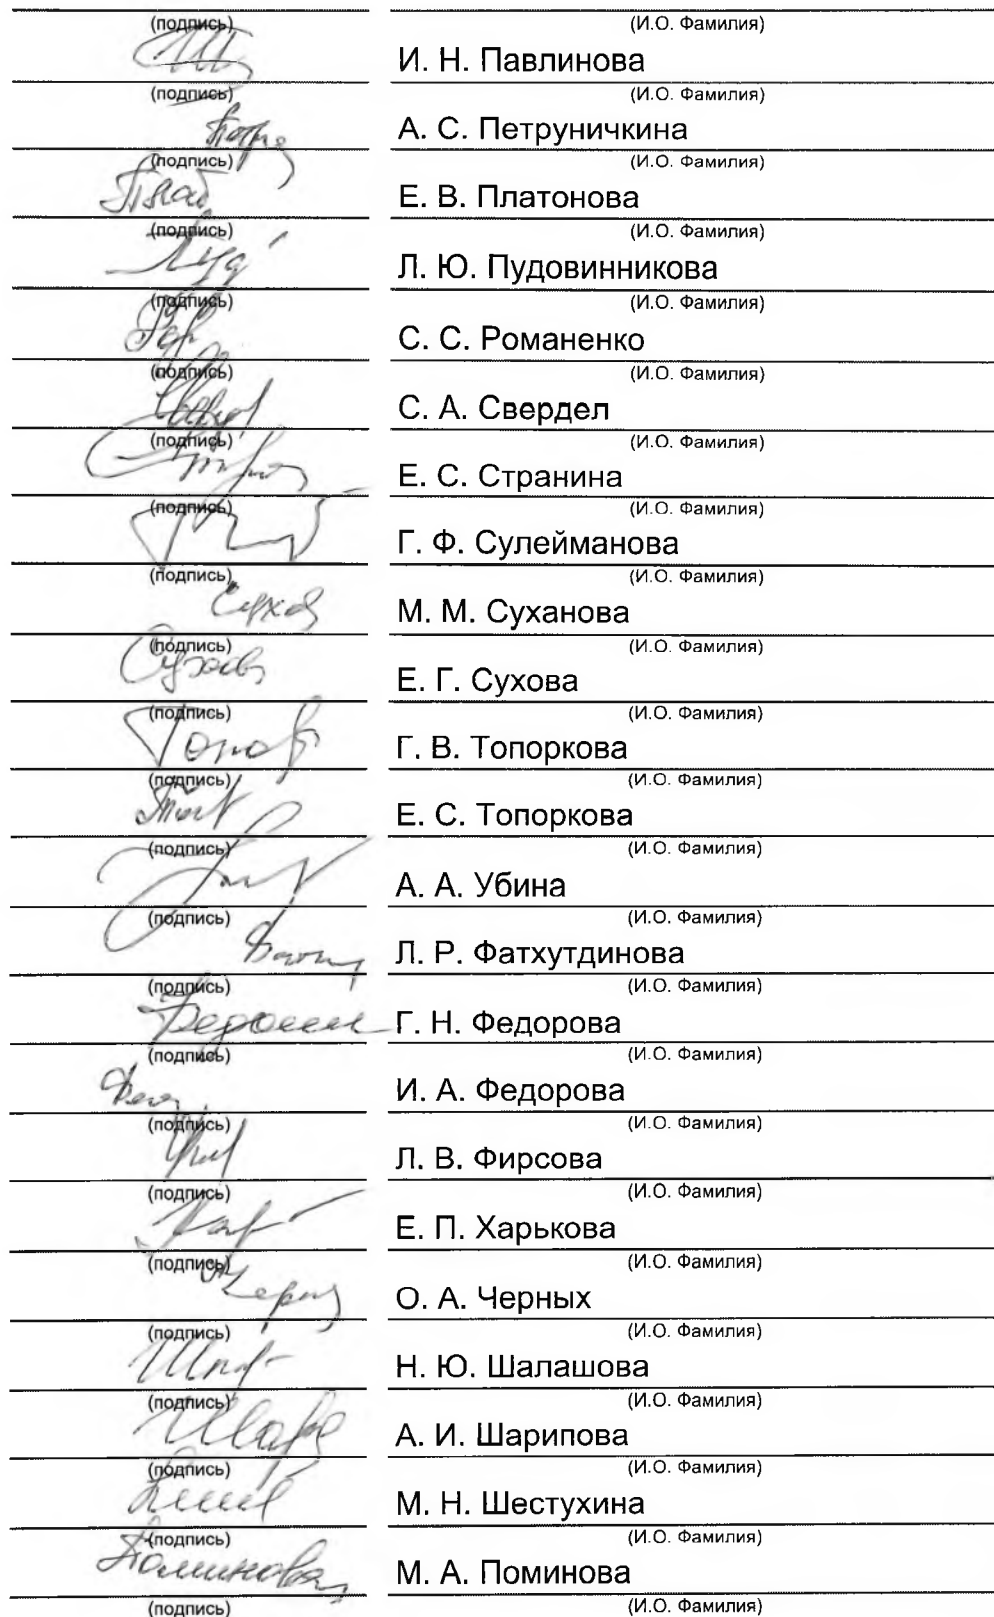 (подпись) (И.О. Фамилия)
И. Н. Павлинова
(подпись) (И.О. Фамилия)
А. С. Петруничкина
(подпись) (И.О. Фамилия)
Е. В. Платонова
(подпись) (И.О. Фамилия)
Л. Ю. Пудовинникова
(подпись) (И.О. Фамилия)
С. С. Романенко
(подпись) (И.О. Фамилия)
С. А. Свердел
(подпись) (И.О. Фамилия)
Е. С. Странина
(подпись) (И.О. Фамилия)
Г. Ф. Сулейманова
(подпись) (И.О. Фамилия)
М. М. Суханова
(подпись) (И.О. Фамилия)
Е. Г. Сухова
(подпись) (И.О. Фамилия)
Г. В. Топоркова
(подпись) (И.О. Фамилия)
Е. С. Топоркова
(подпись) (И.О. Фамилия)
А. А. Убина
(подпись) (И.О. Фамилия)
Л. Р. Фатхутдинова
(подпись) (И.О. Фамилия)
Г. Н. Федорова
(подпись) (И.О. Фамилия)
И. А. Федорова
(подпись) (И.О. Фамилия)
Л. В. Фирсова
(подпись) (И.О. Фамилия)
Е. П. Харькова
(подпись) (И.О. Фамилия)
О. А. Черных
(подпись) (И.О. Фамилия)
Н. Ю. Шалашова
(подпись) (И.О. Фамилия)
А. И. Шарипова
(подпись) (И.О. Фамилия)
М. Н. Шестухина
(подпись) (И.О. Фамилия)
М. А. Поминова
(подпись) (И.О. Фамилия)